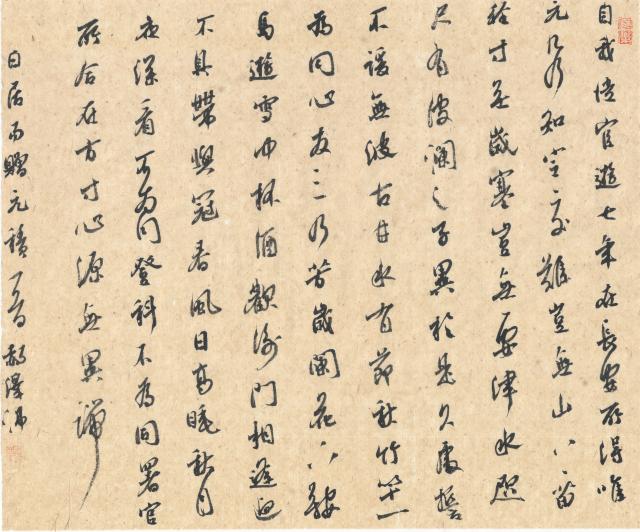 自我從宦遊七年在長安所得唯
元君乃知定交難豈無山上苗
徑寸無歲寒豈無要津水咫
尺有波瀾之子異於是久處誓
不諼無波古井水有節秋竹竿一
為同心友三及芳歲闌花下鞍
馬遊雪中杯酒歡衡門相逢迎
不具帶與冠春風日高睡秋月
夜深看不為同登科不為同署官
所合在方寸心源無異端
白居易贈元稹一首 郝澤